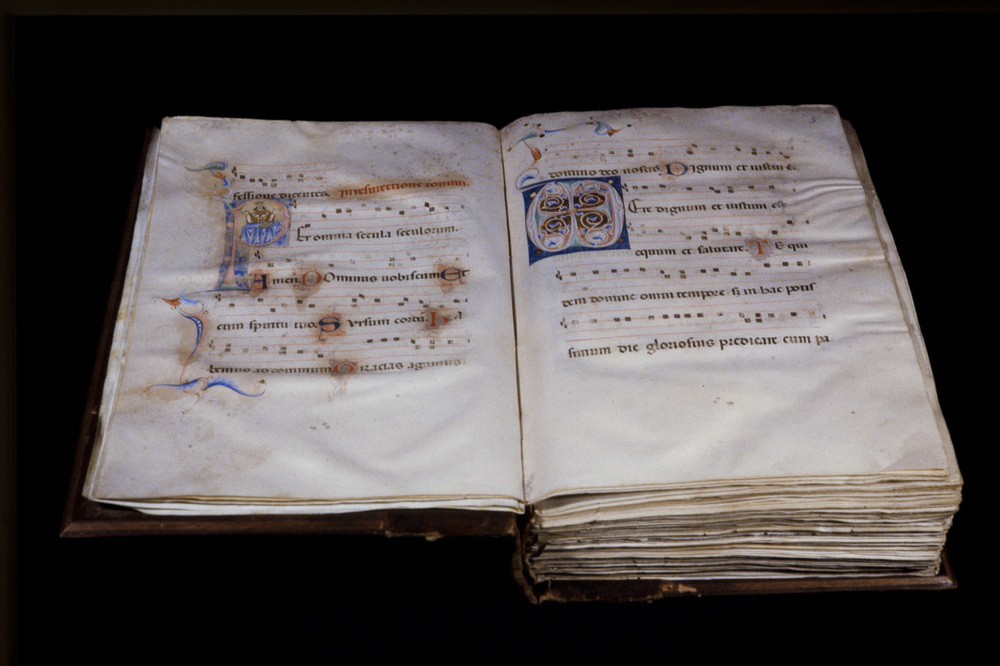 fessione dicentes In resurrectione domini.
Per omnia secula seculorum.
Amen. Dominus uobiscum Et
cum spiritu tuo. Sursum corda. Ha
bemus ad dominum Gracias agamus
domino deo nostro. Dignum et iustum est
Uere dignum et iustum est
equum et salutare. Te qui
dem domine omni tempore s; in hac potis
simum die gloriosius predicare cum pa